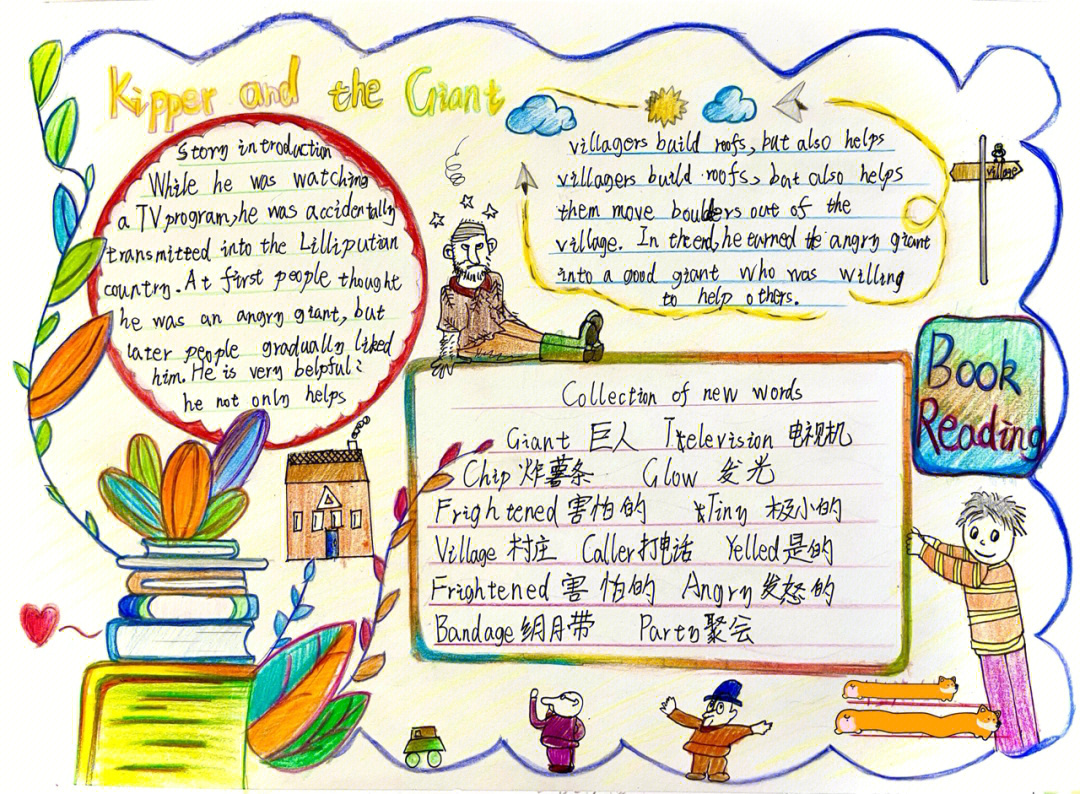 Kipper and the Giant
Story introduction
While he was watching
a TV program, he was accidentally
transmitted into the Lilliputian
country. At first people thought
he was an angry giant, but
later people gradually liked
him. He is very helpful:
he not only helps
villagers build roofs, but also helps
villagers build roofs, but also helps
them move boulders out of the
village. In the end, he earned the angry giant
into a good giant who was willing
to help others.
village
Book
Reading
Collection of new words
Giant 巨人 Television 电视机
Chip 炸薯条 Glow 发光
Frightened 害怕的 Tiny 极小的
Village 村庄 Caller 打电话 Yelled 是的
Frightened 害怕的 Angry 发怒的
Bandage 绷带 Party 聚会